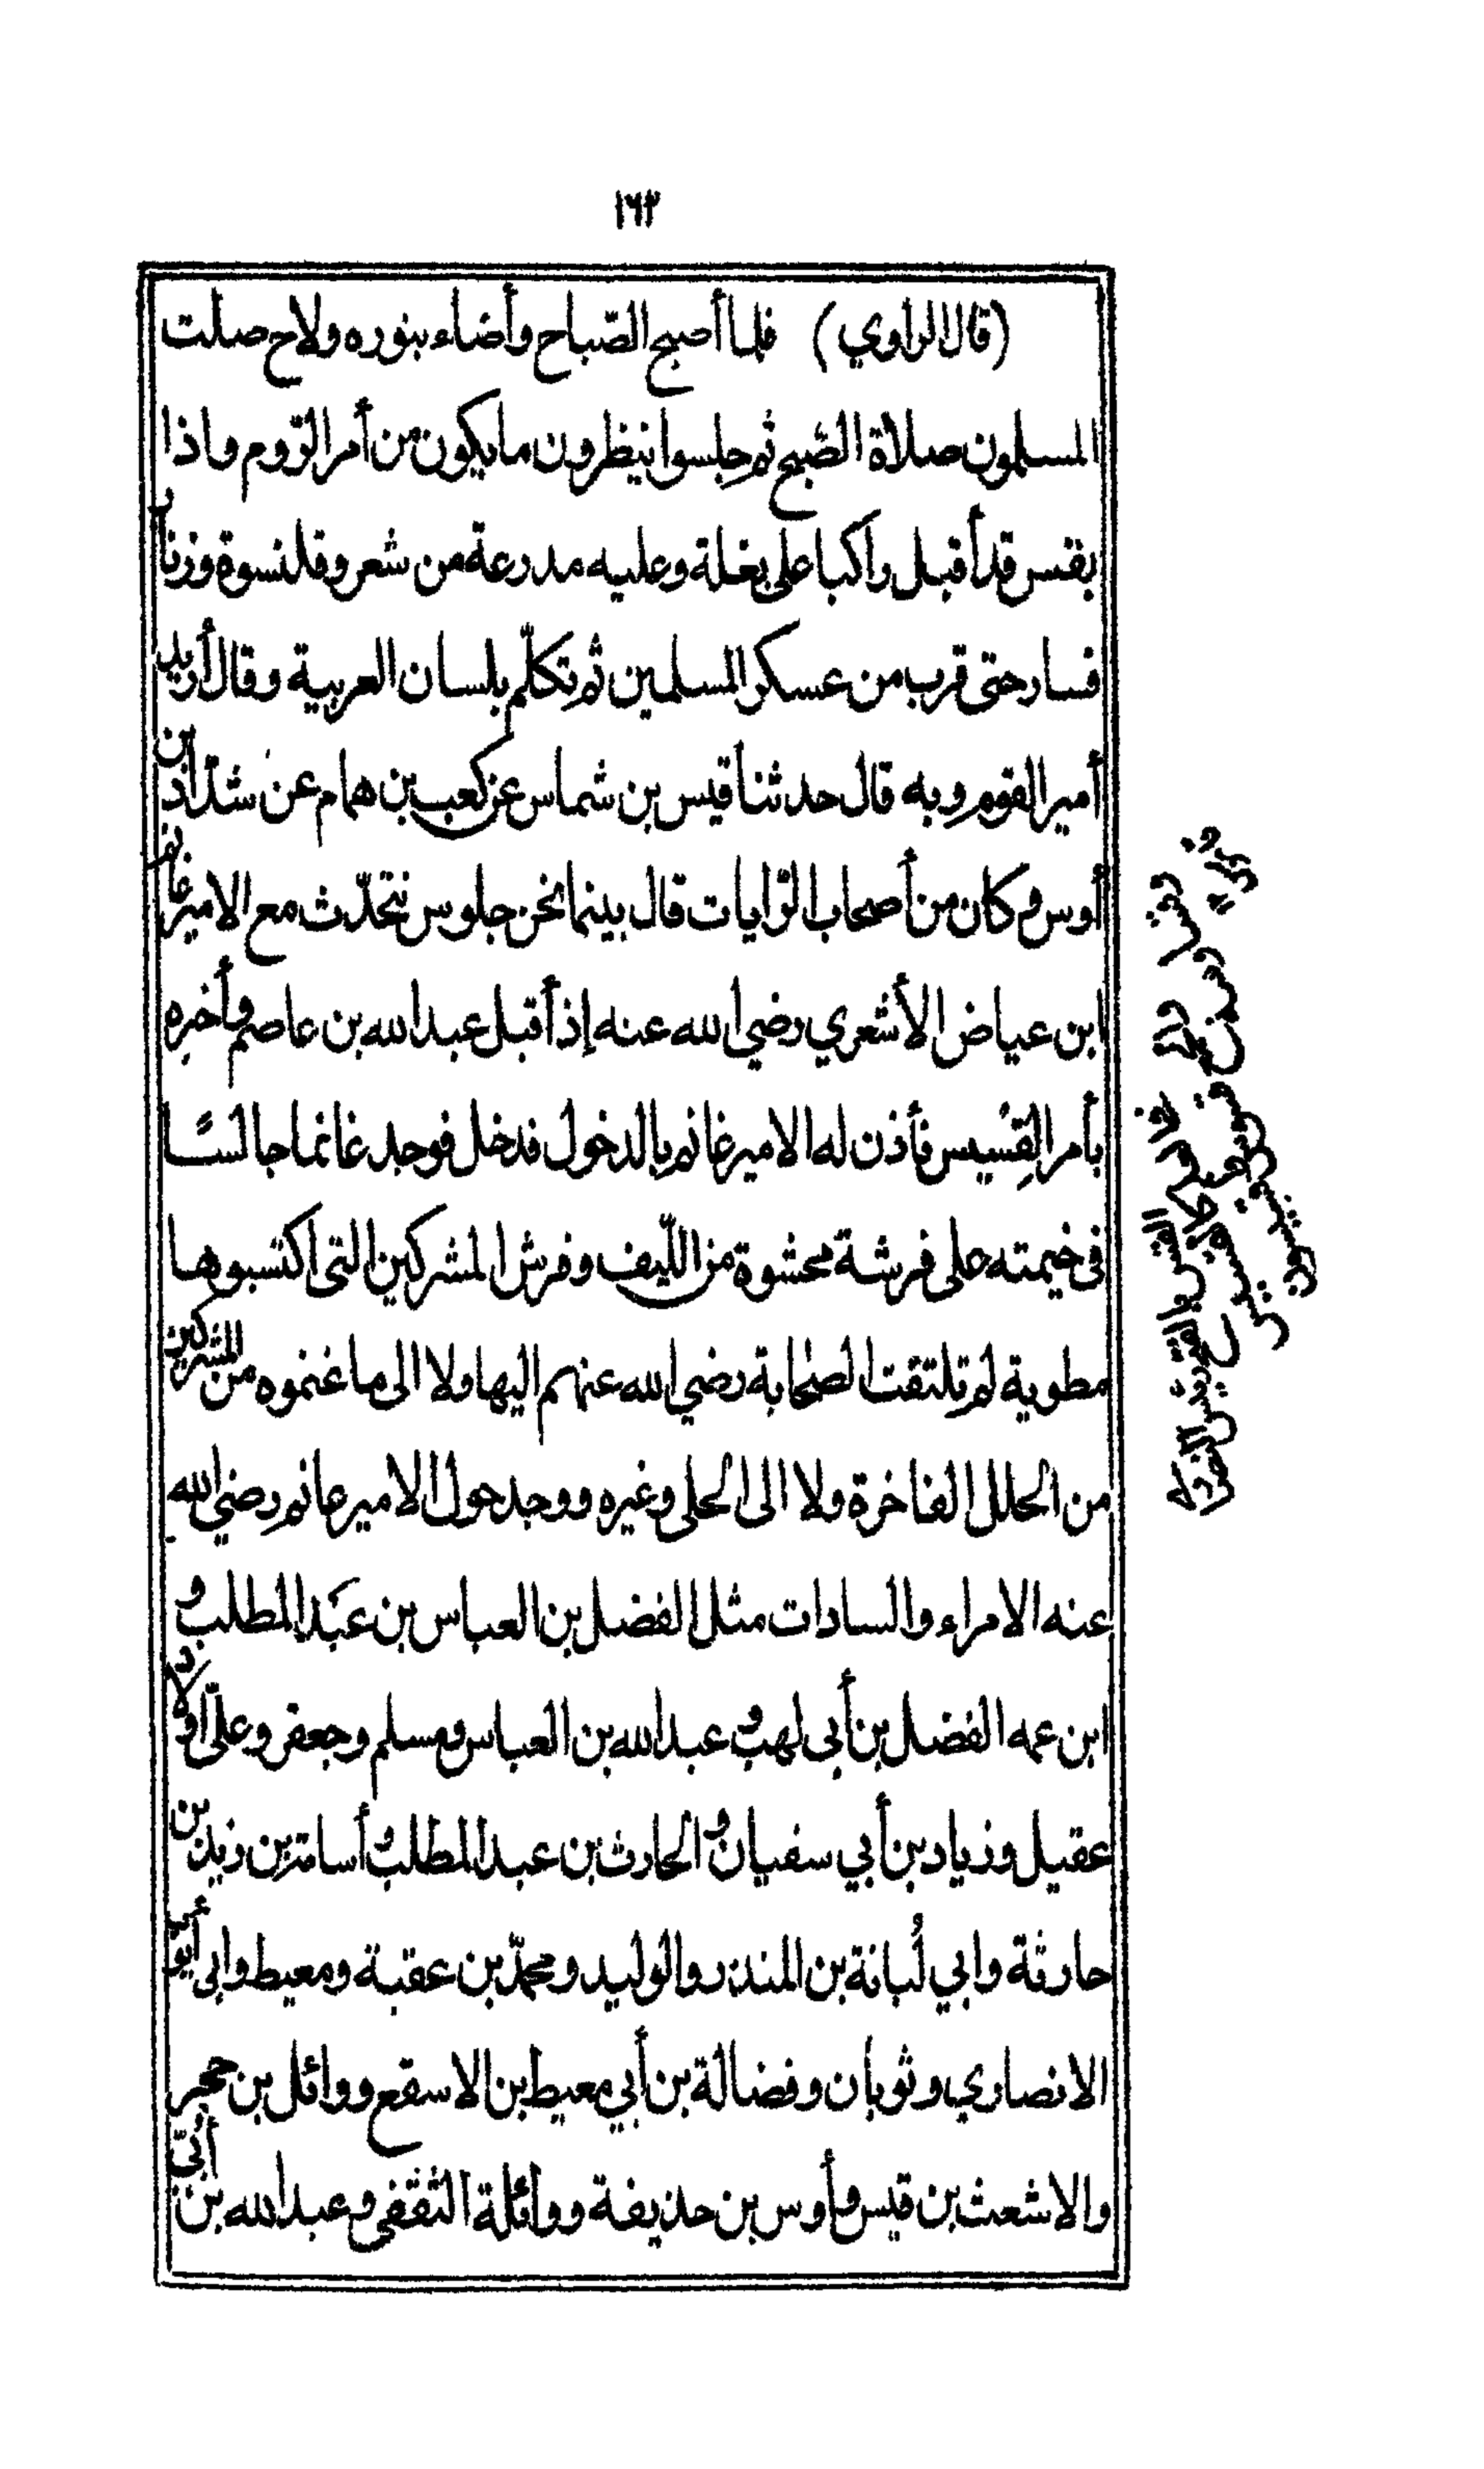 ١٦٣
(قال الراوي) فلما أصبح الصّباح وأضاء بنوره ولاح صلت
المسلمون صلاة الصّبح ثم جلسوا ينظرون ما يكون من أمر الرّوم واذا
بقس قد أقبل راكبا على بغلة وعليه مدرعة من شعر وقلنسوة وزنار
فسار حتى قرب من عسكر المسلمين ثم تكلّم بلسان العربية وقال أريد
أمير القوم وبه قال حدثنا قيس بن شماس عن كعب بن همام عن شدّاد بن
أوس وكان من أصحاب الرّايات قال بينما نحن جلوس نتحدّث مع الامير غانم
ابن عياض الأشعري رضي الله عنه إذ أقبل عبد الله بن عاصم وأخبره
بأمر القِسّيس فأذن له الامير غانم بالدخول فدخل فوجد غانما جالسًا
فى خيمته على فرشة محشوة من اللّيف وفرش المشركين التى اكتسبوها
مطوية لم تلتقت الصحابة رضي الله عنهم اليها ولا الى ما غنموه من المشركين
من الحلل الفاخرة ولا الى الحلى وغيره ووجد حول الامير غانم رضي الله
عنه الامراء والسادات مثل الفضل بن العباس بن عبد المطلب و
ابن عمه الفضل بن أبى لهب و عبد الله بن العباس ومسلم وجعفر وعلىّ اولاد
عقيل وزياد بن أبي سفيان و الحارث بن عبد المطلب و أسامة بن زيد بن
حارثة وابي لُبانة بن المنذر والوليد ومحمّد بن عقبة ومعيط وابى أيّوب
الانصاري وثوبان وفضالة بن أبي معيط بن الاسقع ووائل بن حجر
والاشعث بن قيس وأوس بن حذيفة ووائلة الثقفى وعبد الله بن أبىّ